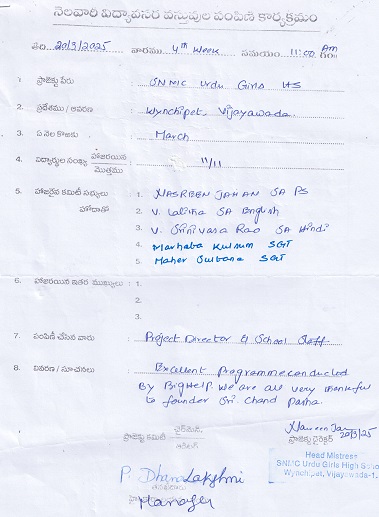 నెలవారి విద్యావసర వస్తువుల పంపిణీ కార్యక్రమం
తేది 20/3/2025 వారము 4th Week సమయం 11:00 Am గం
1. ప్రాజెక్టు పేరు : SNMC Urdu Girls HS
2. ప్రదేశము / ఆవరణ : Wynchipet, Vijayawada.
3. ఏ నెల కొఱకు : March
4. విద్యార్థుల సంఖ్య హాజరయిన / మొత్తము : 11/11
5. హాజరైన కమిటీ సభ్యులు హోదాతో : 1. NASREEN JAHAN SA PS
2. V. Lalitha SA English
3. V. Srinivasa Rao SA Hindi
4. Marhaba Kulsum SGT
5. Maher Sultana SGT
6. హాజరయిన ఇతర ముఖ్యులు : 1.
2.
3.
7. పంపిణీ చేసిన వారు : Project Director & School Staff
8. వివరణ / సూచనలు : Excellent Programme conducted
By BigHelp. We are all very thankful
to founder Sri. Chand Pasha.
ప్రాజెక్టు కమిటీ చైర్మన్
Nasreen Jan 20/3/25
ప్రాజెక్టు డైరెక్టర్
Head Mistress
SNMC Urdu Girls High School
Wynchipet, Vijayawada-1.
P. Dhanalakshmi
Manager